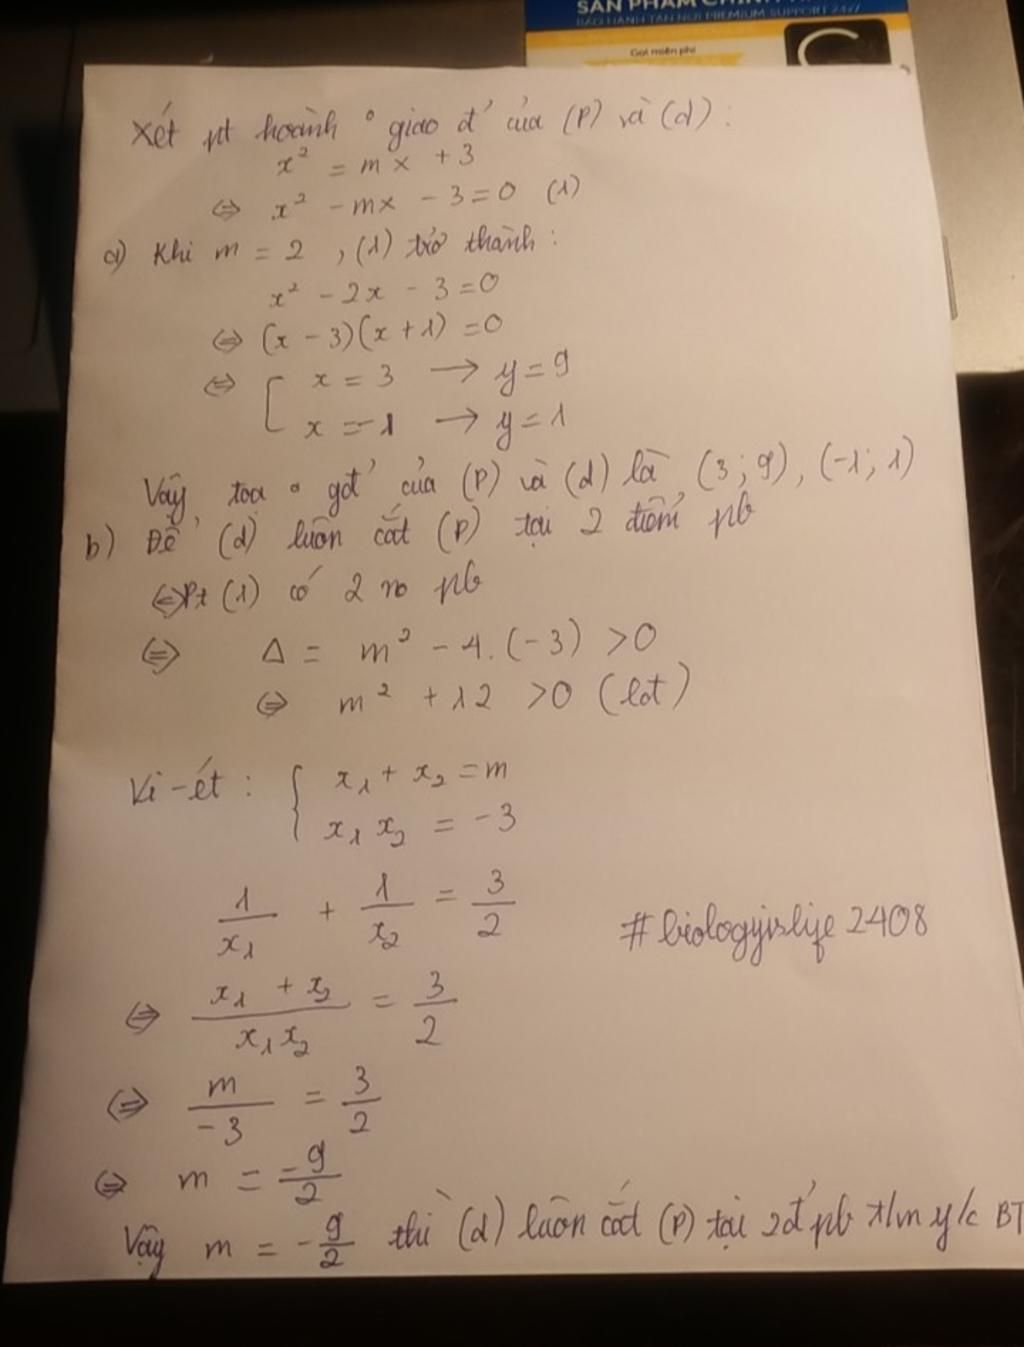 SẢN PHẨM CHÍNH
BẢO HÀNH TẬN NƠI PREMIUM SUPPORT 24/7
Gọi miễn phí
Xét pt hoành ° giao đ' của (P) và (d) :
x² = mx + 3
⇔ x² - mx - 3 = 0 (1)
a) Khi m = 2 , (1) trở thành :
x² - 2x - 3 = 0
⇔ (x - 3)(x + 1) = 0
⇔ [ x = 3 → y = 9
x = -1 → y = 1
Vậy, tọa ° gđ' của (P) và (d) là (3 ; 9), (-1 ; 1)
b) Để (d) luôn cắt (P) tại 2 điểm pb
⇔ Pt (1) có 2 no pb
⇔ Δ = m² - 4.(-3) > 0
⇔ m² + 12 > 0 (lđt)
Vi-ét : { x₁ + x₂ = m
x₁ x₂ = -3
1/x₁ + 1/x₂ = 3/2
#biologyislife2408
⇔ (x₁ + x₂)/(x₁x₂) = 3/2
⇔ m/-3 = 3/2
⇔ m = -9/2
Vậy m = -9/2 thì (d) luôn cắt (P) tại 2đ' pb t/m y/c BT